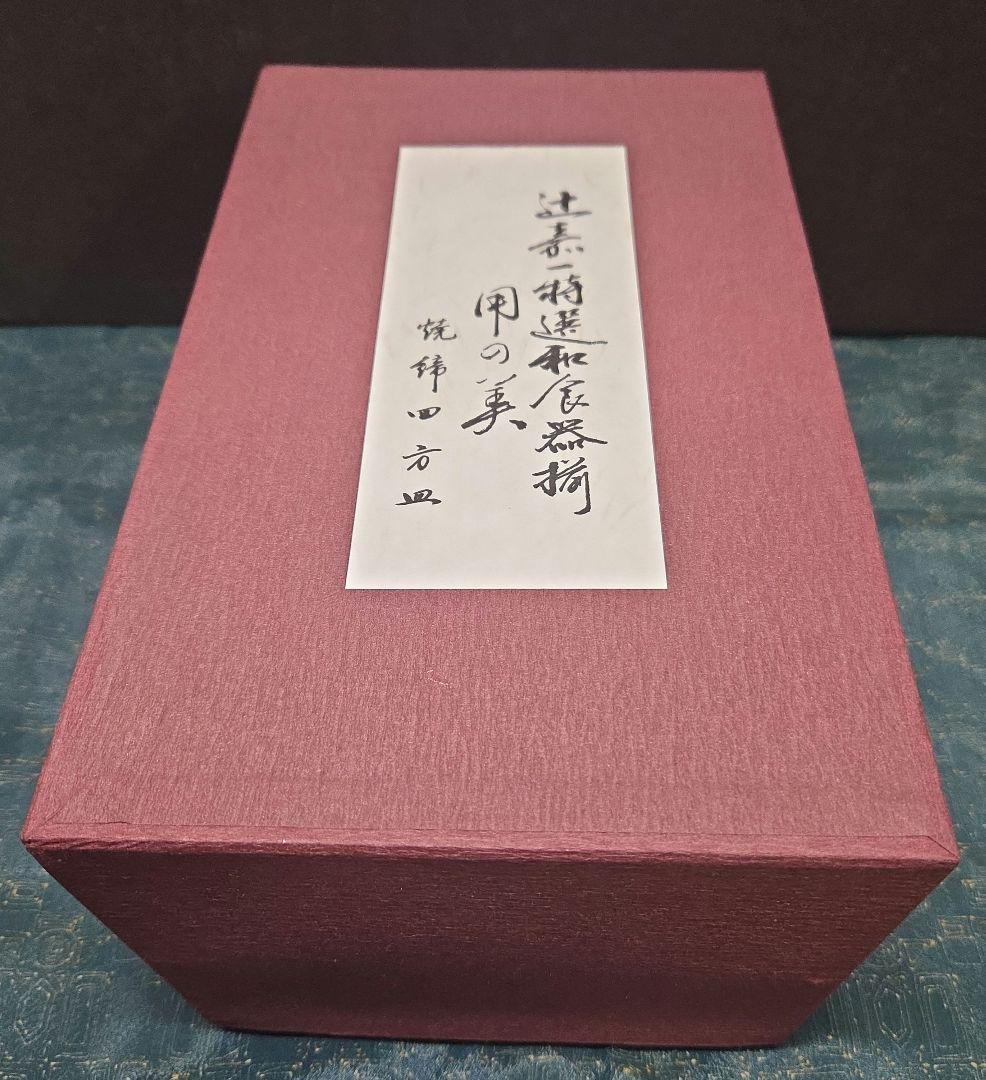 辻嘉一特選和食器揃
用の美
焼締四方皿